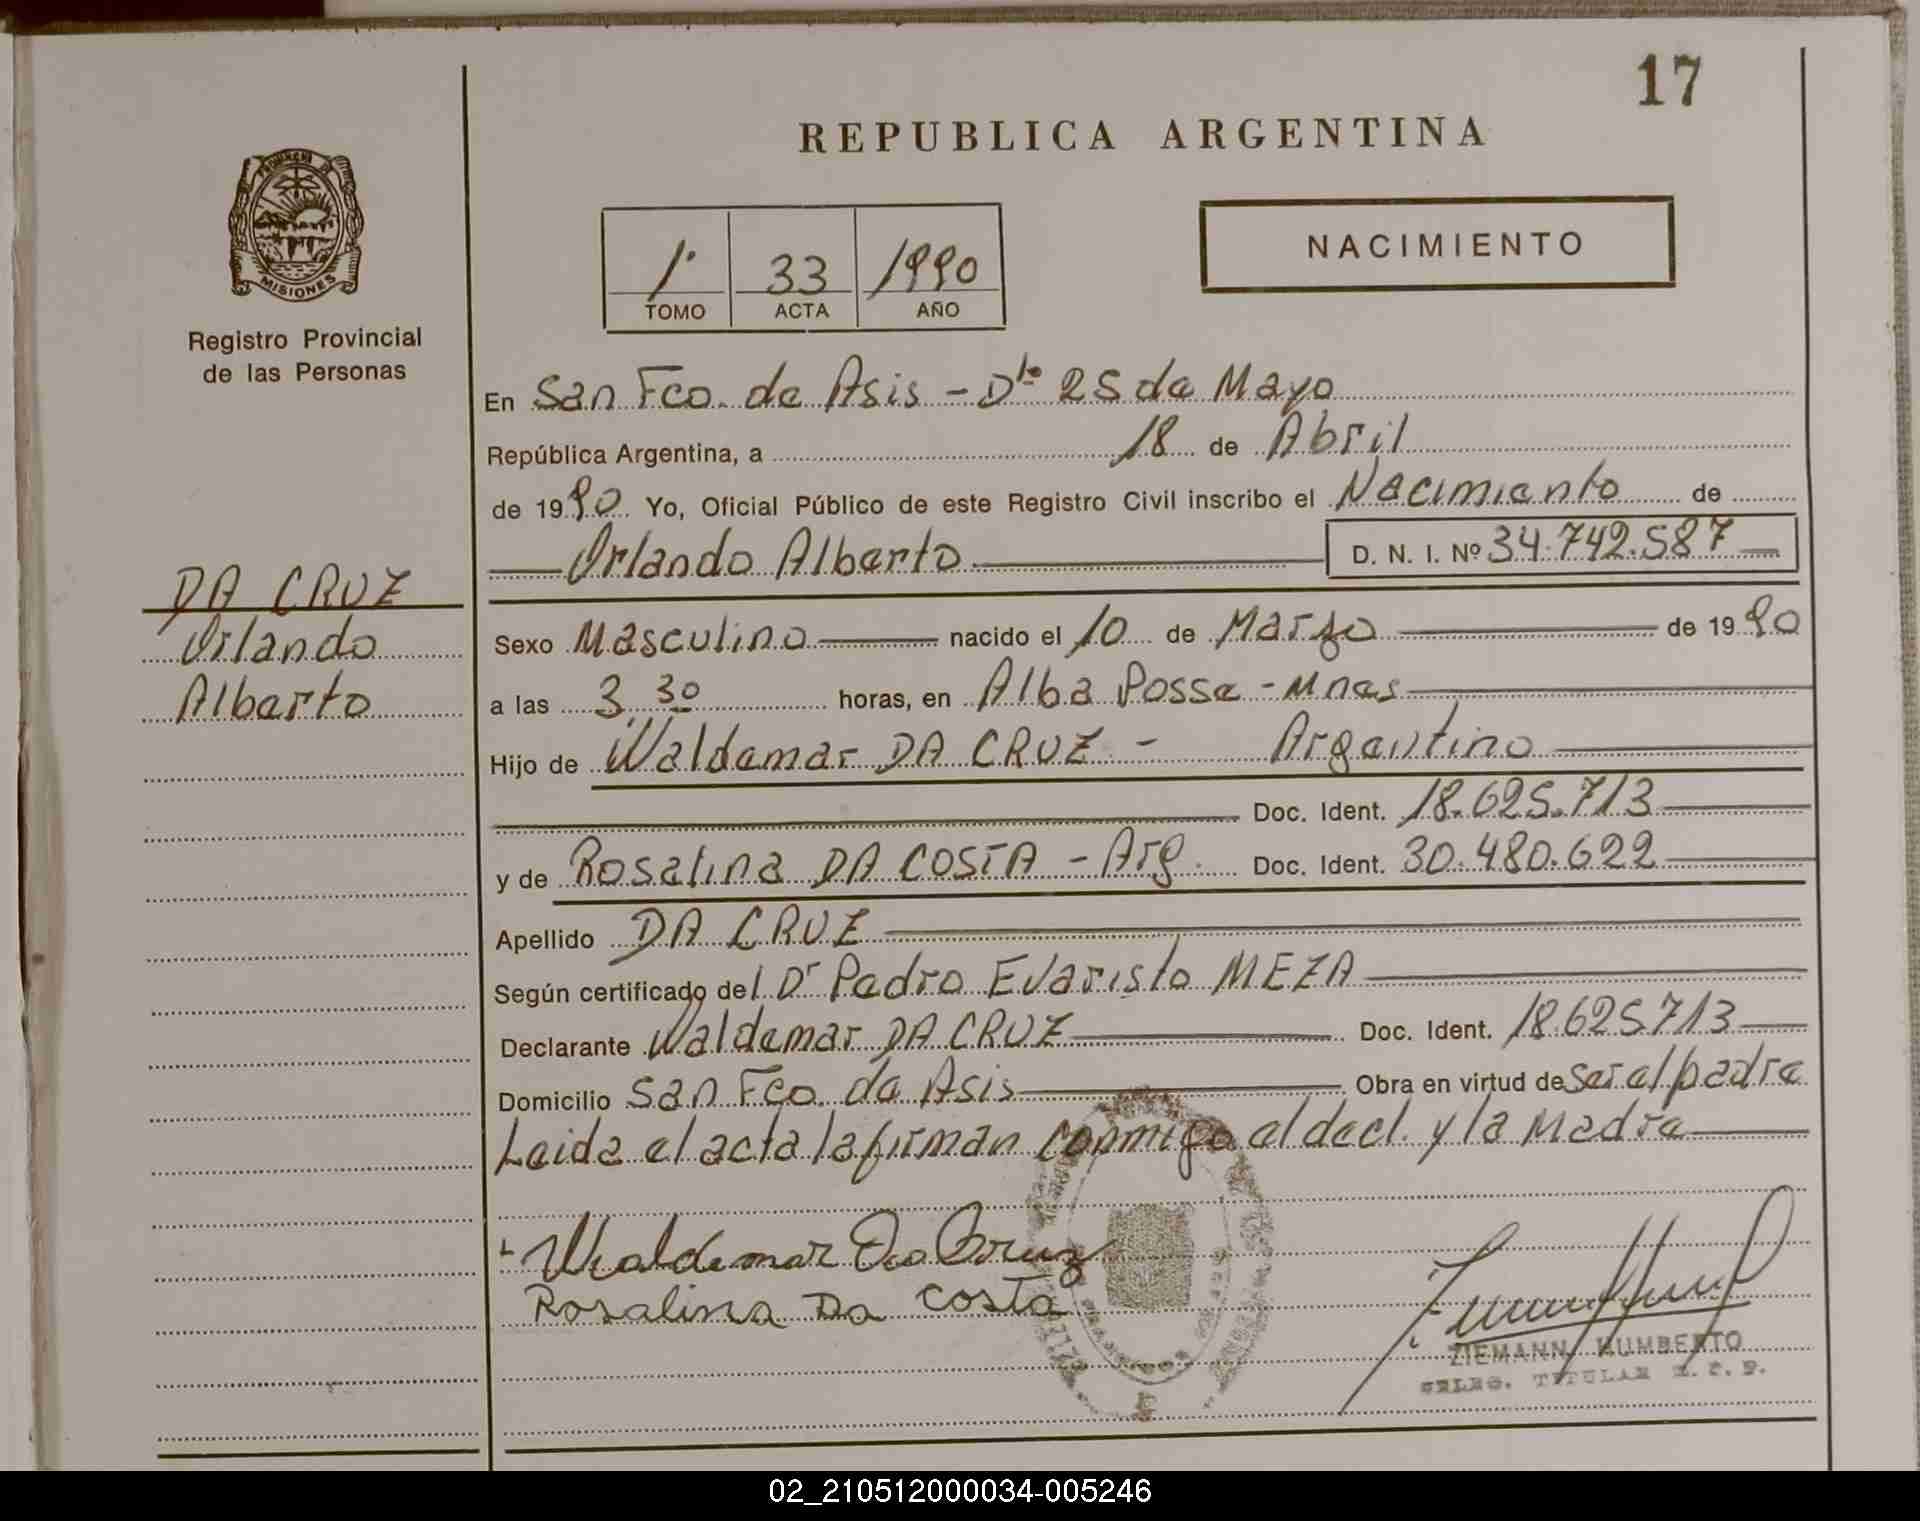 17
REPUBLICA ARGENTINA
PROVINCIA DE
MISIONES
Registro Provincial
de las Personas
1º 33 1990
TOMO ACTA AÑO
NACIMIENTO
En San Fco. de Asis - Dto 25 de Mayo
República Argentina, a 18 de Abril
de 1990 Yo, Oficial Público de este Registro Civil inscribo el Nacimiento de
Orlando Alberto D. N. I. Nº 34.742.587
DA CRUZ
Orlando
Alberto
Sexo Masculino nacido el 10 de Marzo de 1990
a las 3,30 horas, en Alba Posse - Mnes
Hijo de Waldemar DA CRUZ - Argentino
Doc. Ident. 18.625.713
y de Rosalina DA COSTA - Arg. Doc. Ident. 30.480.622
Apellido DA CRUZ
Según certificado del Dr Pedro Evaristo MEZA
Declarante Waldemar DA CRUZ Doc. Ident. 18.625713
Domicilio San Fco. de Asis Obra en virtud de ser el padre
Leida el acta la firman conmigo el decl. y la Madre
Waldemar Da Cruz
Rosalina Da Costa
ZIEMANN HUMBERTO
DELEG. TITULAR R. C. P.
02_210512000034-005246